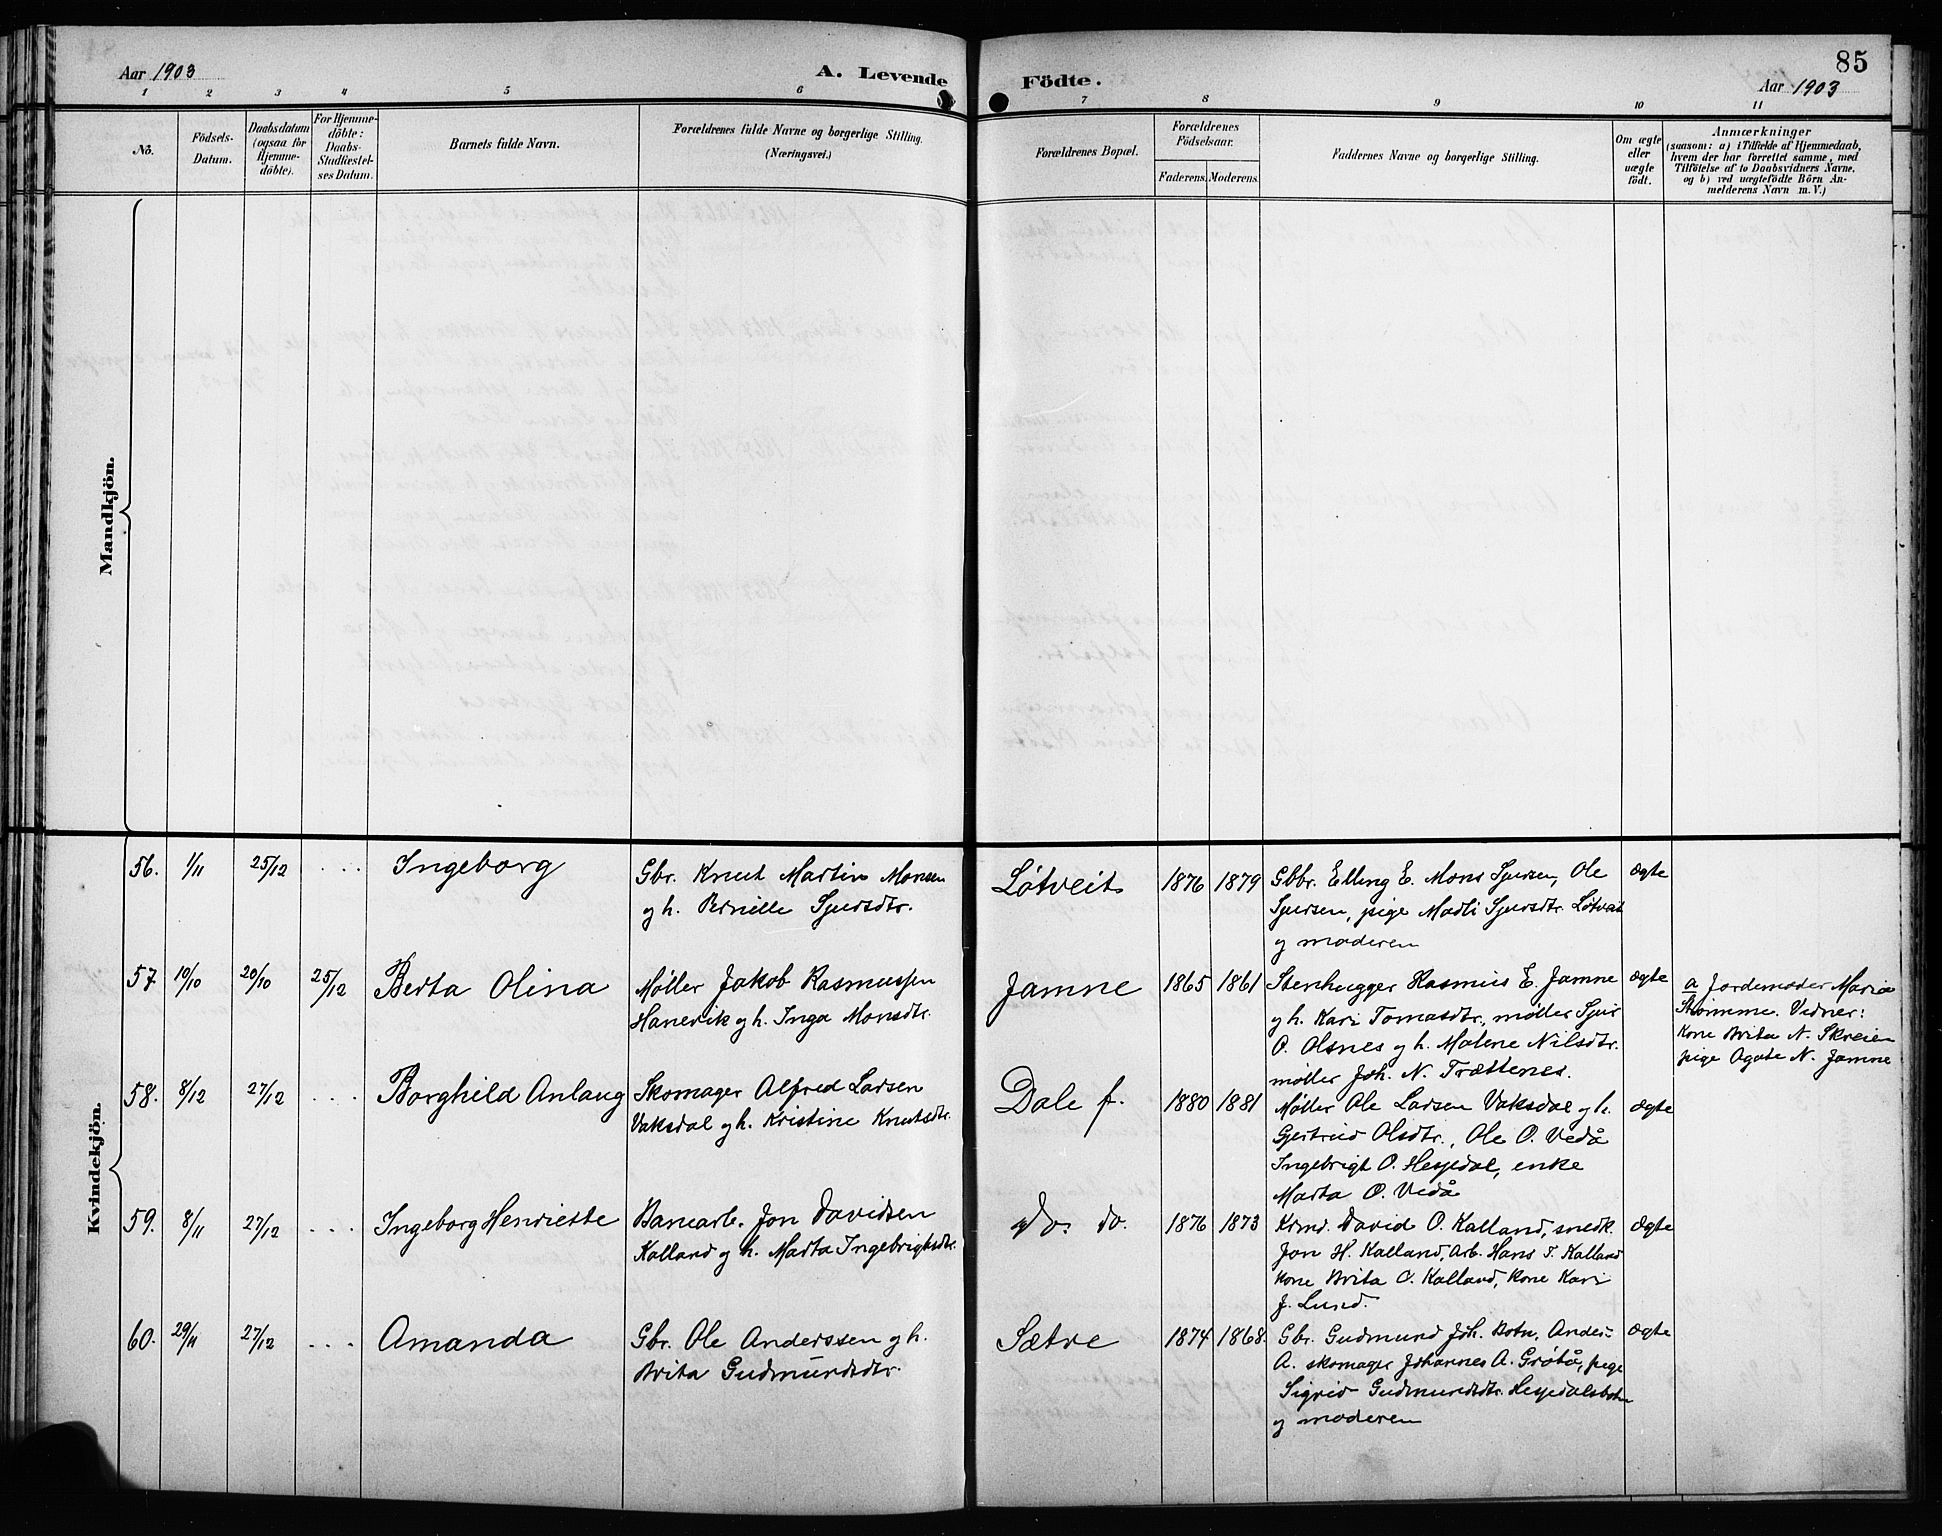 Aar 1903
A. Levende
Födte.
85
Aar 1903
1 2 3 4 5 6 7 8 9 10 11
No.
Födsels-
Datum.
Daabsdatum
(ogsaa for
Hjemme-
döbte).
For Hjemme-
döbte:
Daabs-
Stadfæstel-
ses Datum.
Barnets fulde Navn.
Forældrenes fulde Navne og borgerlige Stilling.
(Næringsvei.)
Forældrenes Bopæl.
Forældrenes
Födselsaar.
Faderens. Moderens.
Faddernes Navne og borgerlige Stilling.
Om ægte
eller
uægte
födt.
Anmærkninger
(saasom: a) i Tilfælde af Hjemmedaab,
hvem der har forrettet samme, med
Tilföielse af to Daabsvidners Navne.
og b) ved uægtefödte Börn An-
melderens Navn m. V.)
Mandkjön.
Kvindekjön.
56. 1/11 25/12 . . . Ingeborg
Gbr. Knut Martin Monsen
og h. Pernille Sjursdtr.
Løtveit 1876 1879
Gbbr. Elling E. Mons Sjursen, Ole
Sjursen, pige Madli Sjursdtr. Løtveit
og moderen
ægte
57 10/10 20/10 25/12 Berta Olina
Møller Jakob Rasmussen
Hanevik og h. Inga Monsdtr.
Jamne 1865 1861
Stenhugger Rasmus E. Jamne
og h. Kari Tomasdtr., møller Sjur
O. Olsnes og h. Malene Nilsdtr.
møller Joh. N. Trættenes.
ægte
a Jordemoder Maria
Skomme. Vidner:
Kone Brita N. Skreien
pige Agate N. Jamne
58. 8/12 27/12 . . . Borghild Anlaug
Skomager Alfred Larsen
Vaksdal og h. Kristine Knutsdtr.
Dale f. 1880 1881
Møller Ole Larsen Vaksdal og h.
Gjertrud Olsdtr., Ole O. Vedå
Ingebrigt O. Hesjedal, enke
Marta O. Vedå
ægte
59. 8/11 27/12 . . . Ingeborg Henriette
Banearb. Jon Davidsen
Kalland og h. Marta Ingebrigtsdtr.
do. do. 1876 1873
Krmd. David O. Kalland, snedk.
Jon H. Kalland, Arb. Hans T. Kalland
kone Brita O. Kalland, kone Kari
J. Lund.
ægte
60. 29/11 27/12 . . . Amanda
Gbr. Ole Anderssen og h.
Brita Gudmundsdtr.
Sætre 1874 1868.
Gbr. Gudmund Joh. Botn, Anders
A. skomager Johannes A. Grøtå, pige
Sigrid Gudmundsdtr. Hesjedalsbotn
og moderen
ægte